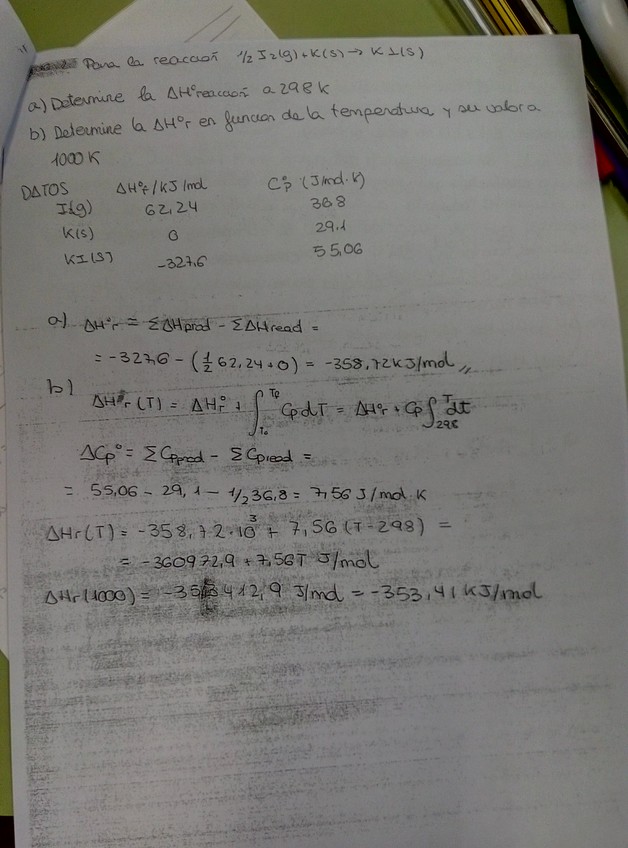 Para la reacción 1/2 I2(g) + K(s) → KI(s)
a) Determine la ΔH°reacción a 298 K
b) Determine la ΔH°r en función de la temperatura y su valor a
1000 K
DATOS ΔH°f/kJ/mol C°p (J/mol·K)
I2(g) 62,24 36.8
K(s) 0 29.1
KI(S) -327,6 55,06
a) ΔH°r = ΣΔHprod - ΣΔHreac =
= -327,6 - (1/2 62,24 + 0) = -358,72 kJ/mol
b) ΔH°r (T) = ΔH°r + ∫ Cp dT = ΔH°r + Cp ∫ T 298 dt
ΔCp° = ΣCpprod - ΣCpreac =
= 55,06 - 29,1 - 1/2 36,8 = 7,56 J/mol K
ΔHr(T) = -358,72·10³ + 7,56 (T - 298) =
= -360972,9 + 7,56T J/mol
ΔHr(1000) = -353412,9 J/mol = -353,41 kJ/mol